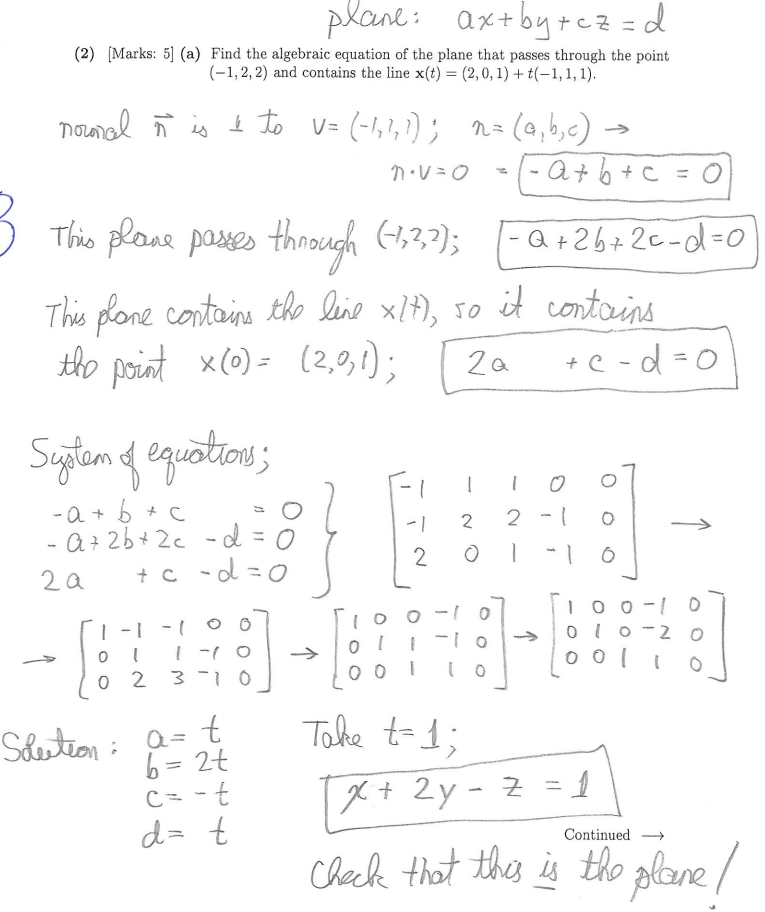 plane: ax+by+cz=d
(2) [Marks: 5] (a) Find the algebraic equation of the plane that passes through the point
(−1, 2, 2) and contains the line x(t) = (2, 0, 1) + t(−1, 1, 1).
normal n⃗ is ⊥ to v=(-1,1,1); n=(a,b,c) →
n·v=0 = -a+b+c = 0
3
This plane passes through (-1,2,2); -a+2b+2c-d=0
This plane contains the line x(t), so it contains
the point x(0) = (2,0,1); 2a +c-d=0
System of equations;
-a+b+c = 0
-a+2b+2c -d=0
2a +c -d=0
-1 1 1 0 0
-1 2 2 -1 0 →
2 0 1 -1 0
1 -1 -1 0 0
→ 0 1 1 -1 0 →
0 2 3 -1 0
1 0 0 -1 0
0 1 1 -1 0 →
0 0 1 1 0
1 0 0 -1 0
0 1 0 -2 0
0 0 1 1 0
Solution: a= t
b= 2t
c= -t
d= t
Take t=1;
x+2y-z=1
Continued →
Check that this is the plane!